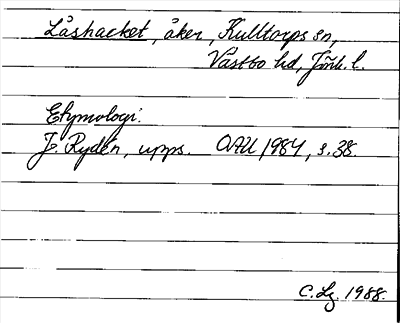 Låshacket, åker, Kulltorps sn,
Västbo hd, Jönk. l.
Etymologi:
J. Rydén, upps. OAU 1984, s. 38.
C. Lg. 1988.